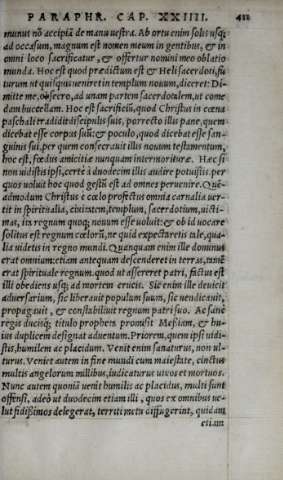 PARAPHR. CAP. XXIIII. 412
munut nō accipiā de manu uestra. Ab ortu enim solis usq;
ad occasum, magnum est nomen meum in gentibus, & in
omni loco sacrificatur, & offertur nomini meo oblatio
munda. Hoc est quod prædictum est & Heli sacerdoti, fu
turum ut quisquis ueniret in templum nouum, diceret: Di-
mitte me obsecro, ad unam partem sacerdotalem, ut come
dam buccellam. Hoc est sacrificiū, quod Christus in cœna
paschali tradidit discipulis suis, porrecto illis pane, quem
dicebat esse corpus suū: & poculo, quod dicebat esse san-
guinis sui, per quem consecrauit illis nouum testamentum,
hoc est, fœdus amicitiæ nunquam intermorituræ. Hæc si
non uidistis ipsi, certè à duodecim illis audire potuistis, per
quos uoluit hoc quod gestū est ad omnes peruenire. Quē-
admodum Christus è cœlo profectus omnia carnalia uer-
tit in spiritualia, ciuitatem, templum, sacerdotium, uicti-
mas, ita regnum quoq; nouum esse uoluit: & ob id uocare
solitus est regnum cœlorū, ne quid expectaretis tale, qua-
lia uidetis in regno mundi. Quanquam enim ille dominus
erat omnium: etiam antequam descenderet in terras, tamē
erat spirituale regnum. quod ut assereret patri, factus est
illi obediens usq; ad mortem crucis. Sic enim ille deuicit
aduersarium, sic liberauit populum suum, sic uendicauit,
propagauit, & constabiliuit regnum patri suo. Ac sanè
regis ducisq; titulo prophetæ promisit Messiam, & hu-
ius duplicem designat aduentum. Priorem, quem ipsi uidi-
stis, humilem ac placidum. Venit enim sanaturus, non ul-
turus. Veniet autem in fine mundi cum maiestate, cinctus
multis angelorum millibus, iudicaturus uiuos et mortuos.
Nunc autem quoniā uenit humilis ac placidus, multi sunt
offensi, adeò ut duodecim etiam illi, quos ex omnibus ue-
lut fidissimos delegerat, territi metu diffugerint, quidam
etiam